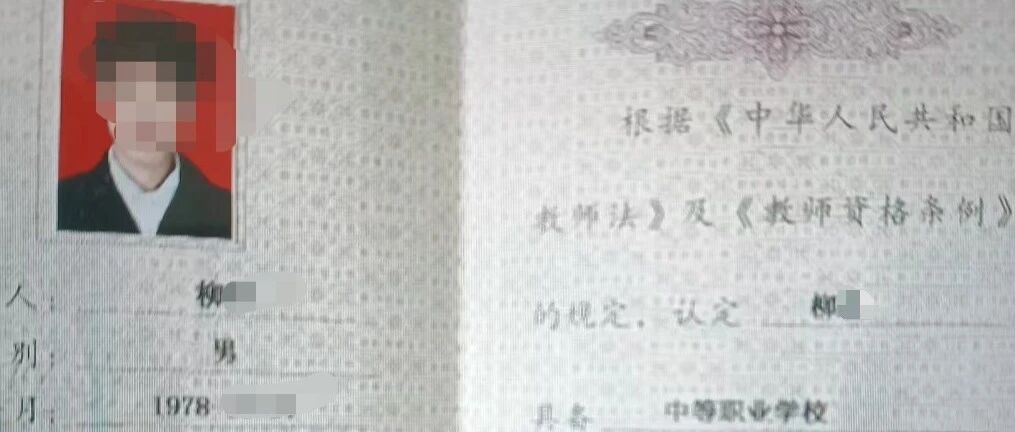 人： 柳
别： 男
月： 1978
根据《中华人民共和国
教师法》及《教师资格条例》
的规定，认定 柳
具备 中等职业学校